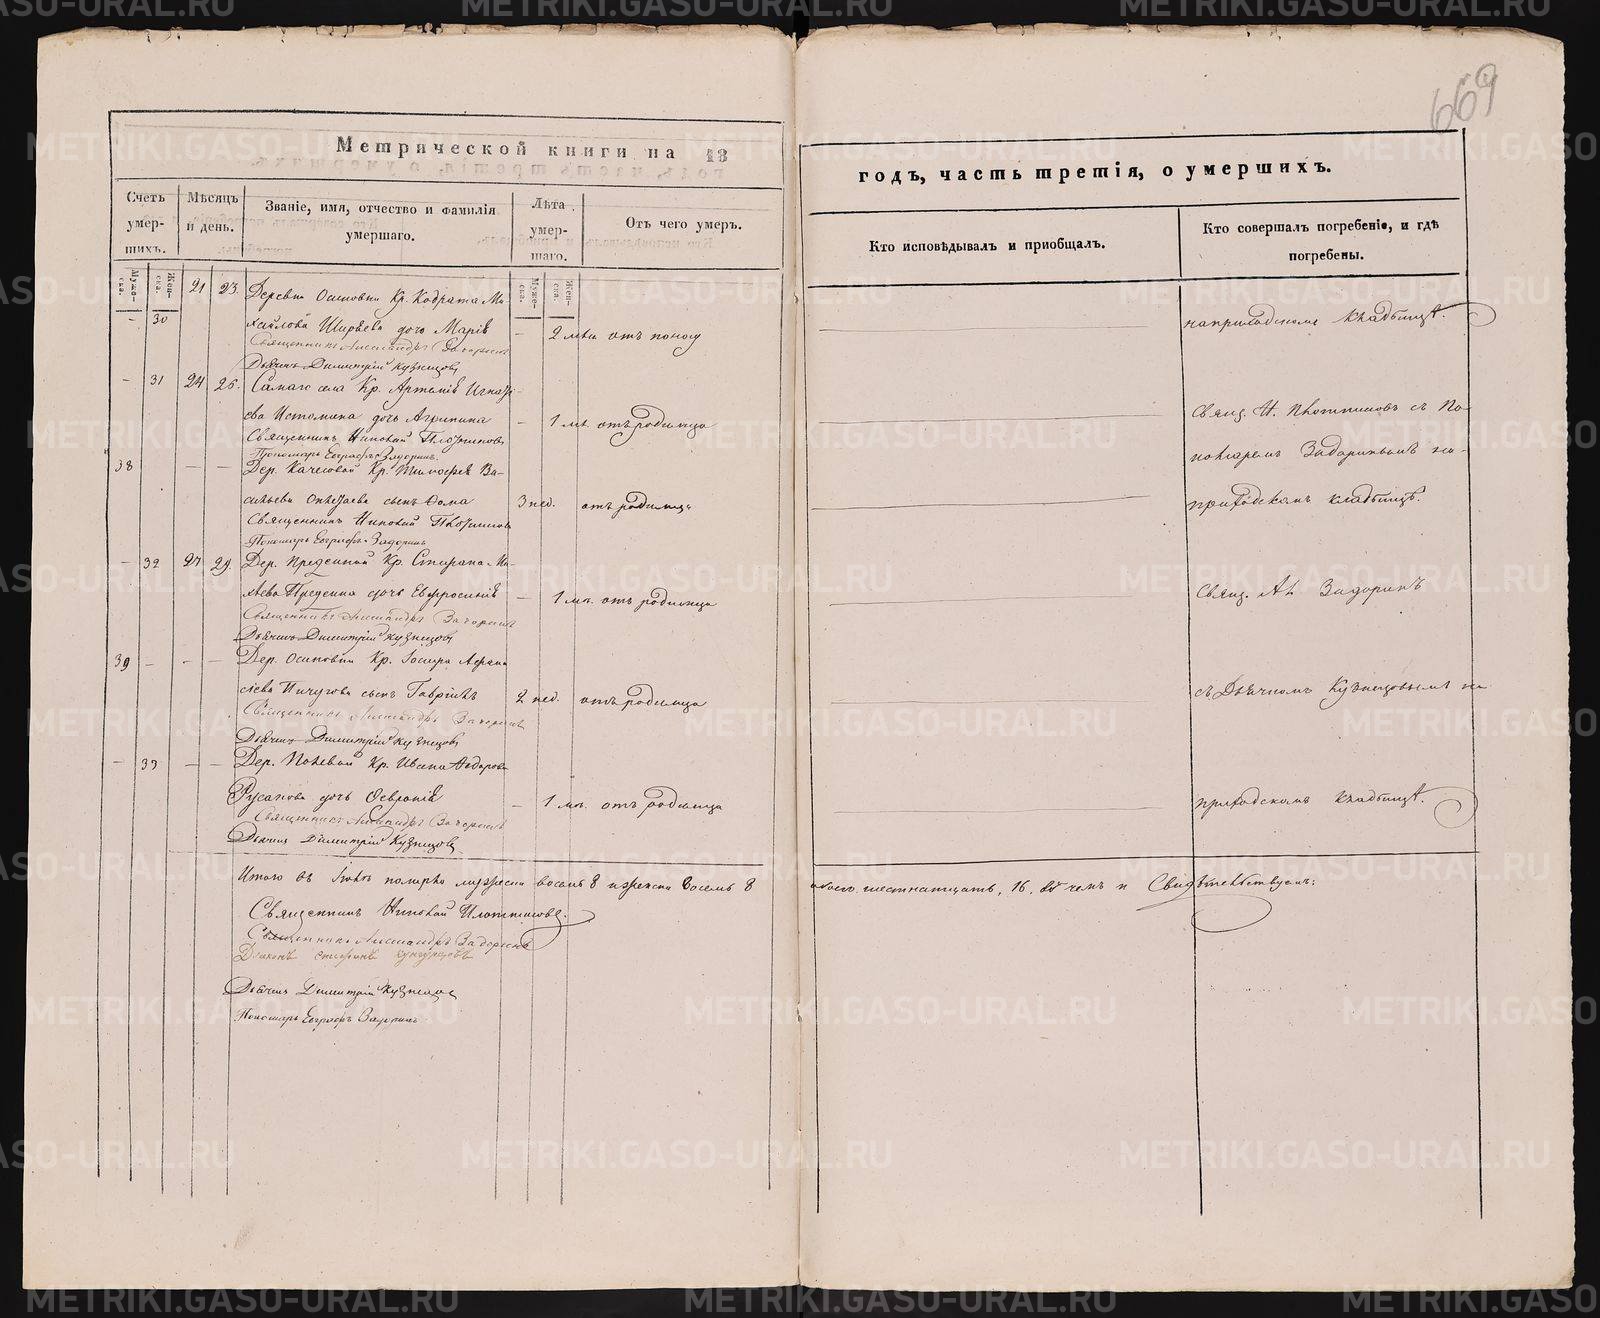 669
Метрической книги на 18
годъ, часть третія, о умершихъ.
Счетъ умер- шихъ.
Мѣсяцъ и день.
Званіе, имя, отчество и фамилія умершаго.
Лѣта умер- шаго.
Отъ чего умеръ.
Кто исповѣдывалъ и пріобщалъ.
Кто совершалъ погребеніе, и гдѣ погребены.
Муже- ска.
Жен- ска.
Муже- ска.
Жен- ска.
21 23. Деревни Осиновки Кр. Кодрата Ми-
- 30 хайлова Ширяева дочь Марія - 2 отъ поносу
на приходскомъ кладбищѣ.
Священникъ Александръ Задоринъ
Дьячекъ Димитрій Кузнецовъ
- 31 24 26. Самаго села Кр. Артемія Игнатi-
ева Истомина дочь Агрипина - 1 м. отъ родимца
Свящ. Н. Плотниковъ съ По-
Священникъ Николай Плотниковъ
Пономарь Евграфъ Задоринъ.
номаремъ Задоринымъ на
38 - - Дер. Качесовой Кр. Тимофея Ва-
сильева сынъ Фома 3 нед. отъ родимца
приходскомъ кладбищѣ.
Священникъ Николай Плотниковъ
Пономарь Евграфъ Задоринъ
- 32 27 29. Дер. Кр. Стефана
дочь Евфросинія - 1 м. отъ родимца
Свящ. Ал. Задоринъ
Священникъ Александръ Задоринъ
Дьячекъ Димитрій Кузнецовъ
39 - - - Дер. Осиновки Кр. Іосифа Афана
сіева Пичугова сынъ Гавріилъ 2 нед. отъ родимца
съ Дьячкомъ Кузнецовымъ на
Священникъ Александръ Задоринъ
Дьячекъ Димитрій Кузнецовъ
- 33 - - Дер. Кр. Ивана Федорова
Русанова дочь Февронія - 1 м. отъ родимца
приходскомъ кладбищѣ.
Священникъ Александръ Задоринъ
Дьячекъ Димитрій Кузнецовъ
Итого въ Іюлѣ померло мужеска восемь 8 и женска восемь 8 обоего шестнатцать, 16. Въ чемъ и Свидѣтельствуемъ:
Священникъ Николай Плотниковъ.
Священникъ Александръ Задоринъ
Дьяконъ Стефанъ
Дьячекъ Димитрій Кузнецовъ
Пономарь Евграфъ Задоринъ
METRIKI.GASO-URAL.RU